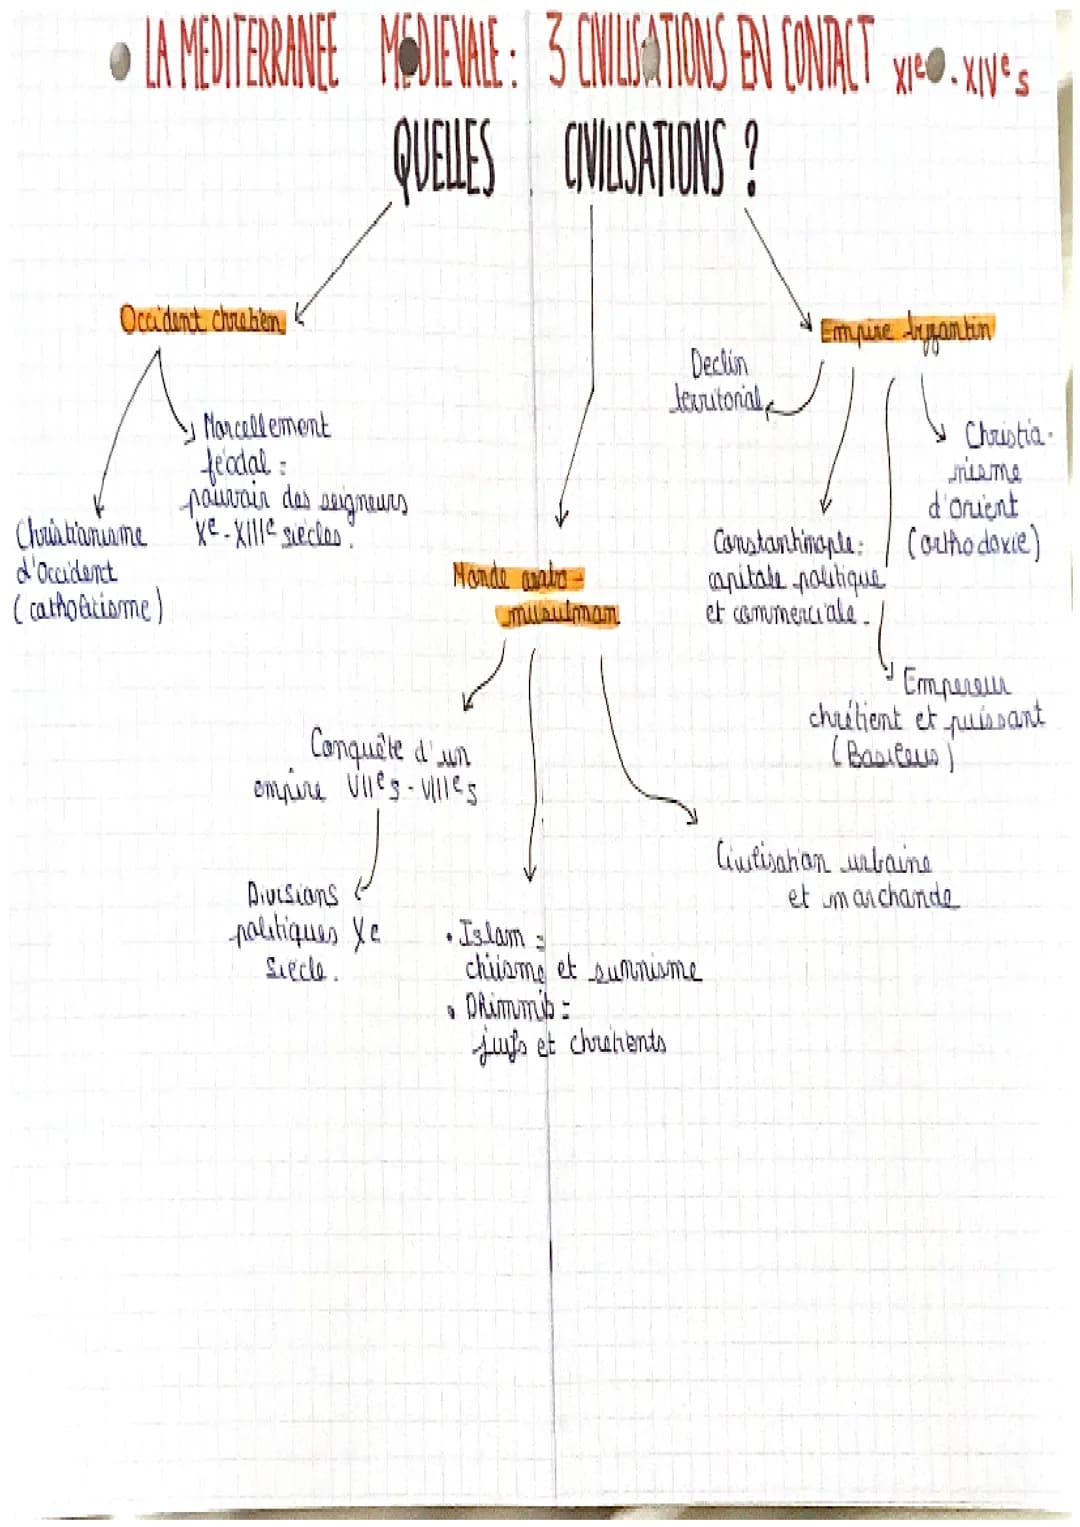 LA MEDITERRANEE MEDIEVALE : 3 CIVILISATIONS EN CONTACT XIe - XIVe s
QUELLES CIVILISATIONS ?
Occident chretien
Morcellement
féodal :
pouvoir des seigneurs
Xe - XIIIe siècles.
Christianisme
d'Occident
(catholicisme)
Monde arabo-
musulman
Conquête d'un
empire VIIes - VIIIes
Divisions
politiques Xe
siècle.
• Islam :
chiisme et sunnisme
• Dhimmis :
juifs et chretients
Civilisation urbaine
et marchande
Empire byzantin
Declin
territorial
Constantinople :
capitale politique
et commerciale.
Empereur
chrétient et puissant
(Basileus)
Christia-
nisme
d'orient
(orthodoxie)